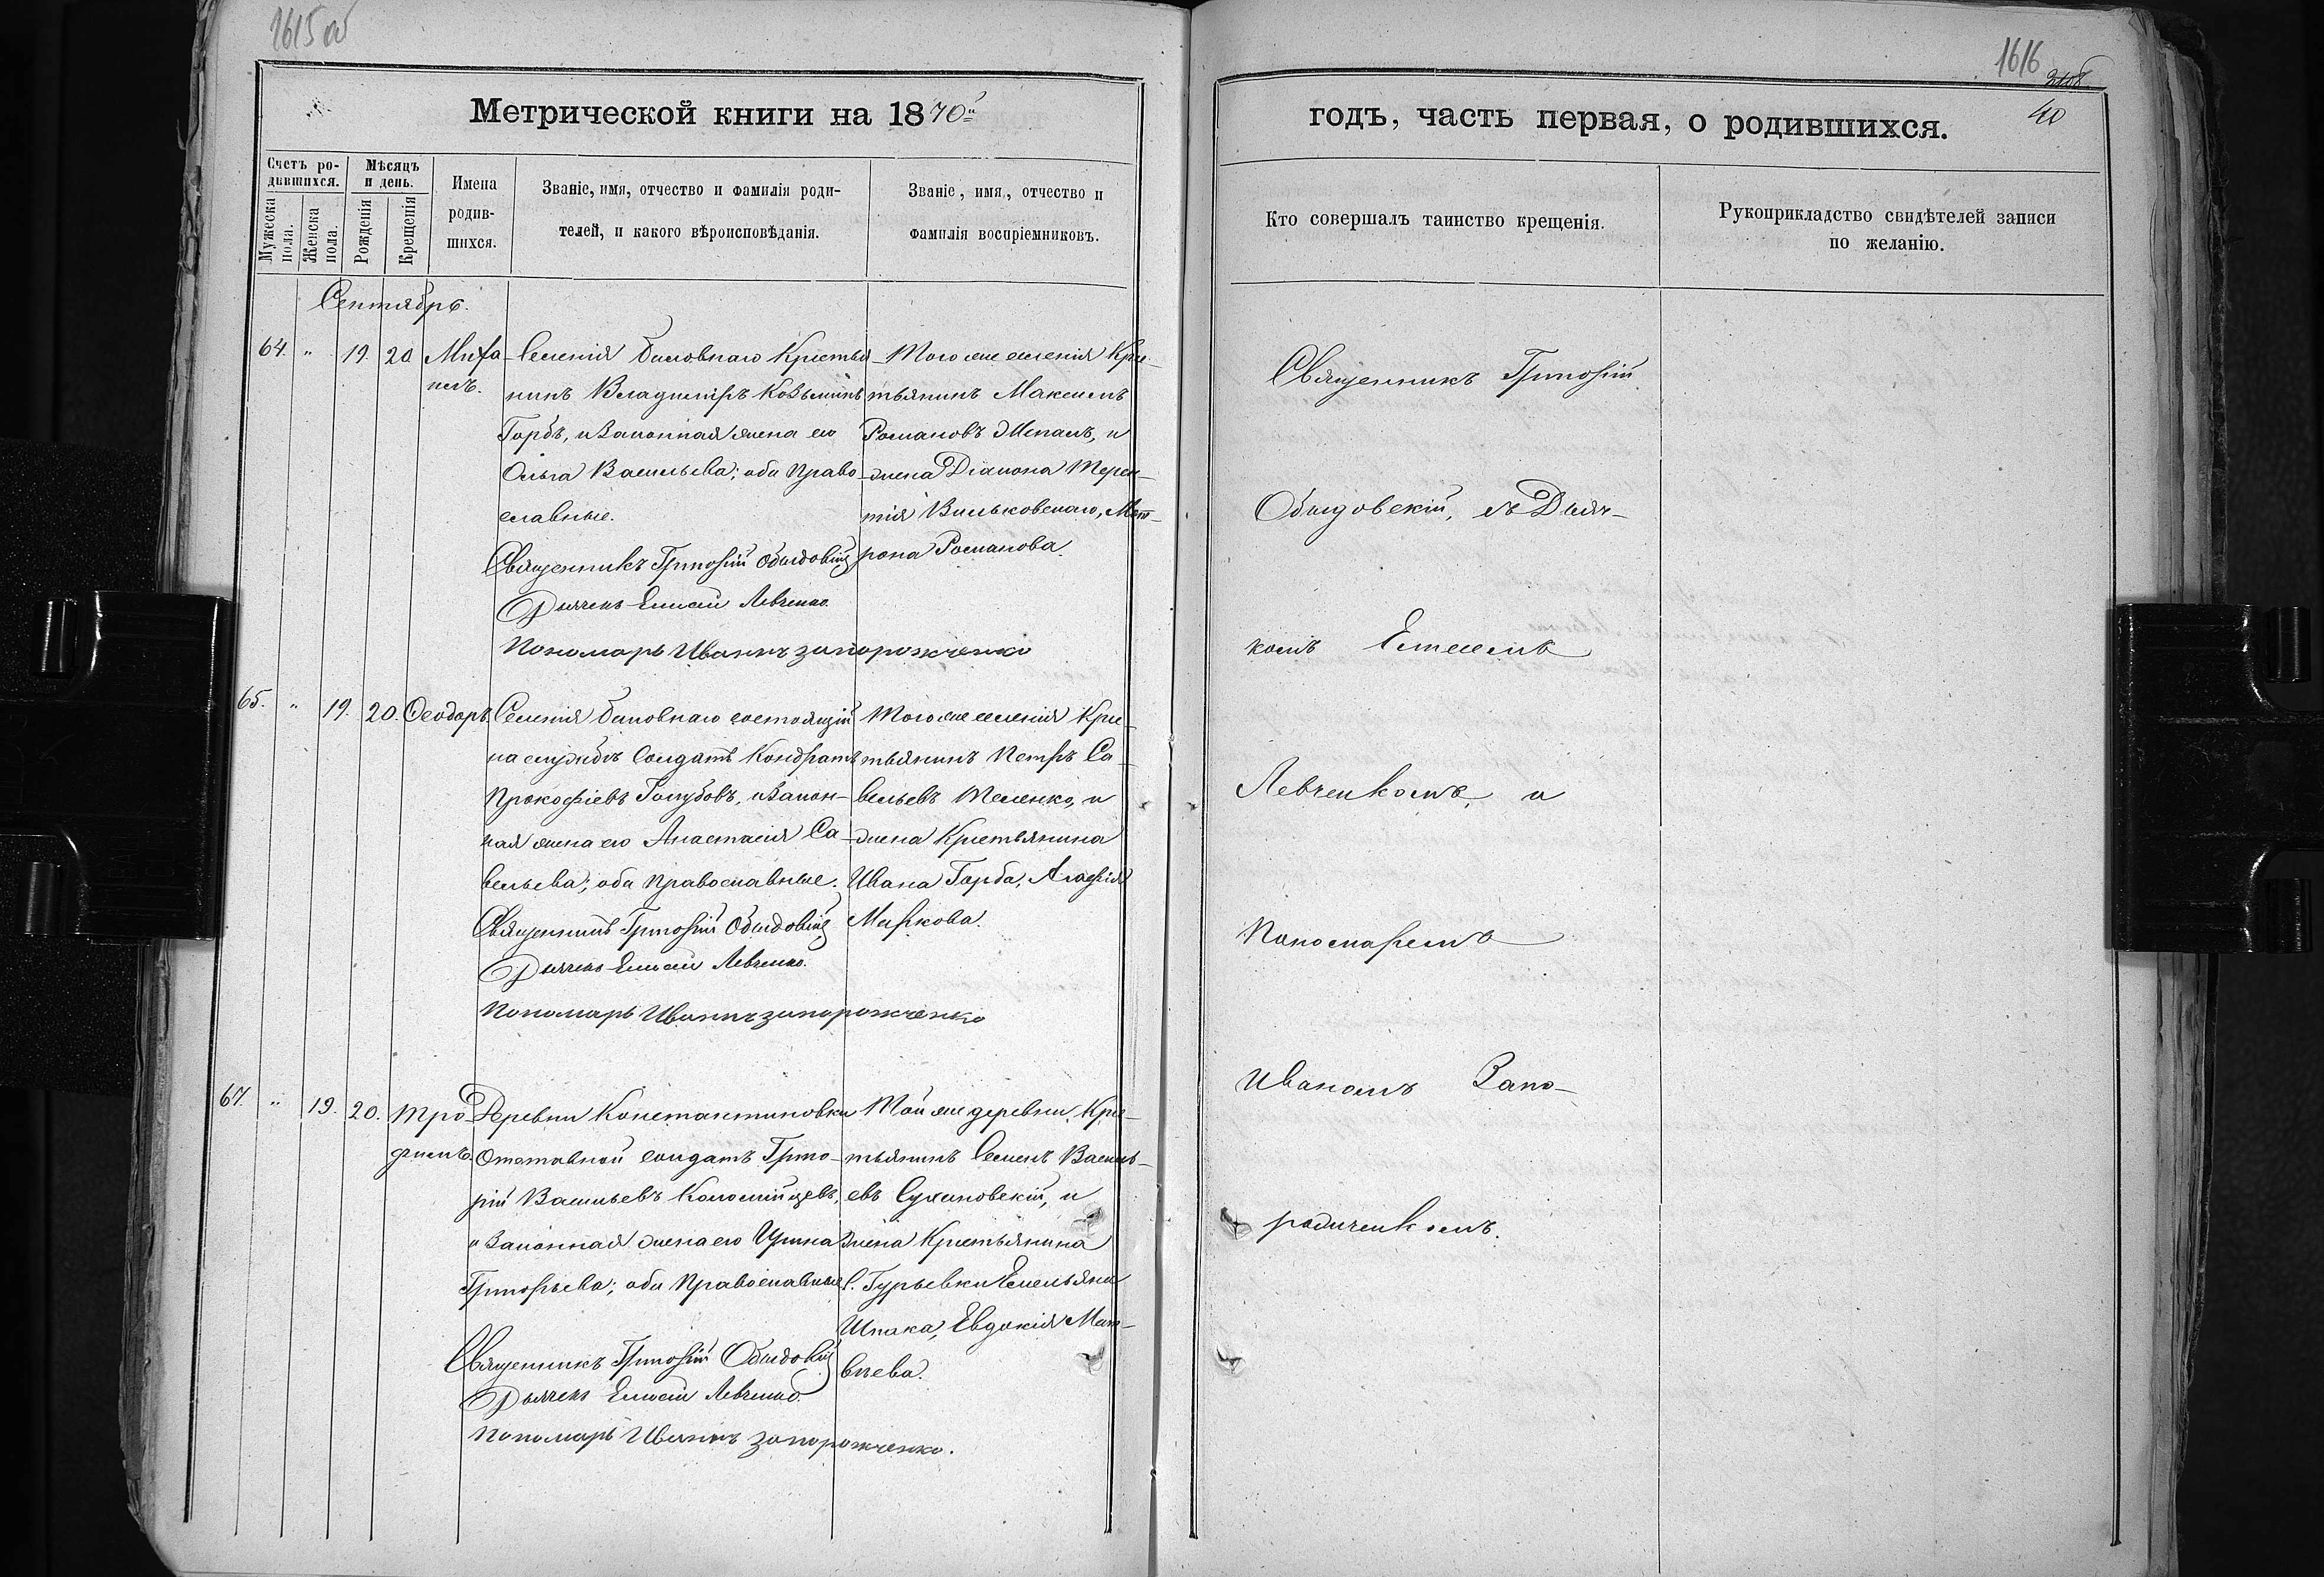 1615 об
1616
40
Метрической книги на 1870й
годъ, часть первая, о родившихся.
Счетъ ро-
дившихся.
Мужеска
пола.
Женска
пола.
Мѣсяцъ
и день.
Рожденія
Крещенія
Имена
родив-
шихся.
Званіе, имя, отчество и фамилія роди-
телей, и какого вѣроисповѣданія.
Званіе, имя, отчество и
фамилія воспріемниковъ.
Кто совершалъ таинство крещенія.
Рукоприкладство свидѣтелей записи
по желанію.
Сентябрь.
64. " 19. 20
Миха-
илъ.
Селенія Баловнаго Крестья-
нинъ Владиміръ Козьминъ
Горбъ, и законная жена его
Ольга Васильева; оба право-
славные.
Священникъ Григорій Обыдовскій
Дьячекъ Елисей Левченко.
Пономарь Иванъ Запорожченко
Того же селенія Кре-
стьянинъ Максимъ
Романовъ Жепалъ, и
жена Діакона Терен-
тія Вильковскаго, Мат-
рона Романова.
65. " 19. 20.
Ѳеодоръ
Селенія Баловнаго состоящій
на службѣ Солдатъ Кондратъ
Прокофіевъ Голубовъ, и закон-
ная жена его Анастасія Са-
вельева; оба Православные.
Священникъ Григорій Обыдовскій
Дьячекъ Елисей Левченко.
Пономарь Иванъ Запорожченко
Того же селенія Кре-
стьянинъ Петръ Са-
вельевъ Теленко, и
жена Крестьянина
Ивана Горба, Агафія
Маркова.
67. " 19. 20.
Тро-
фимъ.
Деревни Константиновки
Отставной солдатъ Григо-
рій Васильевъ Коломійцевъ,
и законная жена его Ирина
Григорьева; оба Православные
Священникъ Григорій Обыдовскій
Дьячекъ Елисей Левченко.
Пономарь Иванъ Запорожченко.
Той же деревни, Кре-
стьянинъ Семенъ Василь-
евъ Сухановскій, и
жена Крестьянина
С. Гурьевки Емельяна
Шпака, Евдокія Мат-
вѣева.
Священникъ Григорій
Обыдовскій, съ Дьяч-
комъ Елисеемъ
Левченкомъ, и
Пономаремъ
Иваномъ Запо-
рожченкомъ.